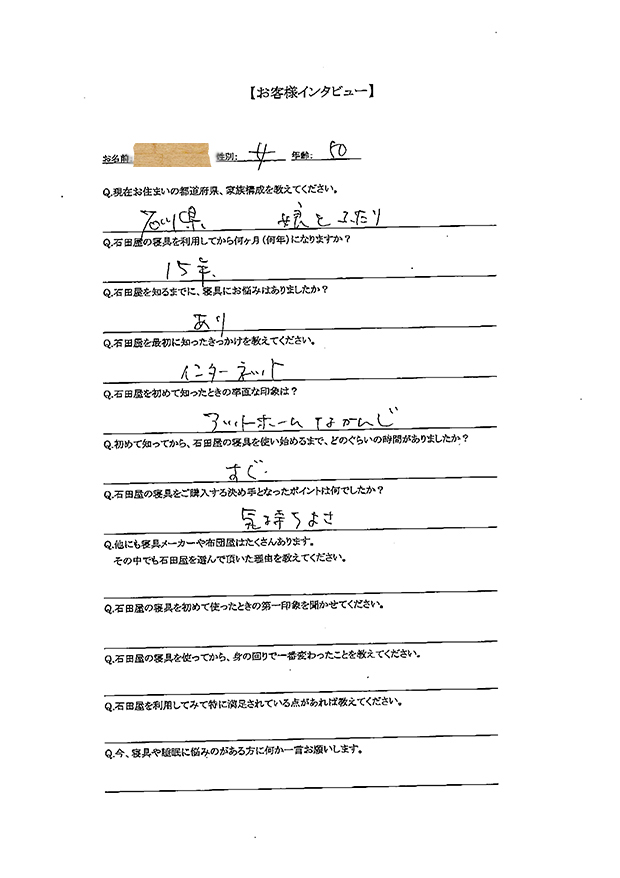 【お客様インタビュー】
お名前: 性別: 女 年齢: 50
Q.現在お住まいの都道府県、家族構成を教えてください。
石川県、 娘とふたり
Q.石田屋の寝具を利用してから何ヶ月（何年）になりますか？
15年、
Q.石田屋を知るまでに、寝具にお悩みはありましたか？
あり
Q.石田屋を最初に知ったきっかけを教えてください。
インターネット
Q.石田屋を初めて知ったときの率直な印象は？
アットホームなかんじ
Q.初めて知ってから、石田屋の寝具を使い始めるまで、どのぐらいの時間がありましたか？
すぐ.
Q.石田屋の寝具をご購入する決め手となったポイントは何でしたか？
気持ちよさ
Q.他にも寝具メーカーや布団屋はたくさんあります。
その中でも石田屋を選んで頂いた理由を教えてください。
Q.石田屋の寝具を初めて使ったときの第一印象を聞かせてください。
Q.石田屋の寝具を使ってから、身の回りで一番変わったことを教えてください。
Q.石田屋を利用してみて特に満足されている点があれば教えてください。
Q.今、寝具や睡眠に悩みのがある方に何か一言お願いします。